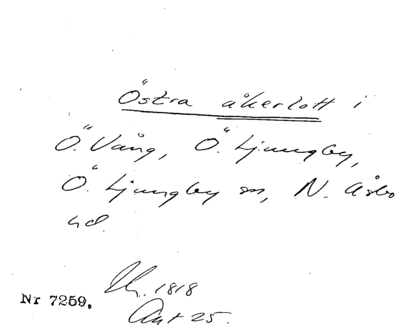 Östra åkerlott i
Ö. Vång, Ö. Ljungby,
Ö. Ljungby sn, N. Åsbo
hd.
1818
Nr 7259.
Ant 25.